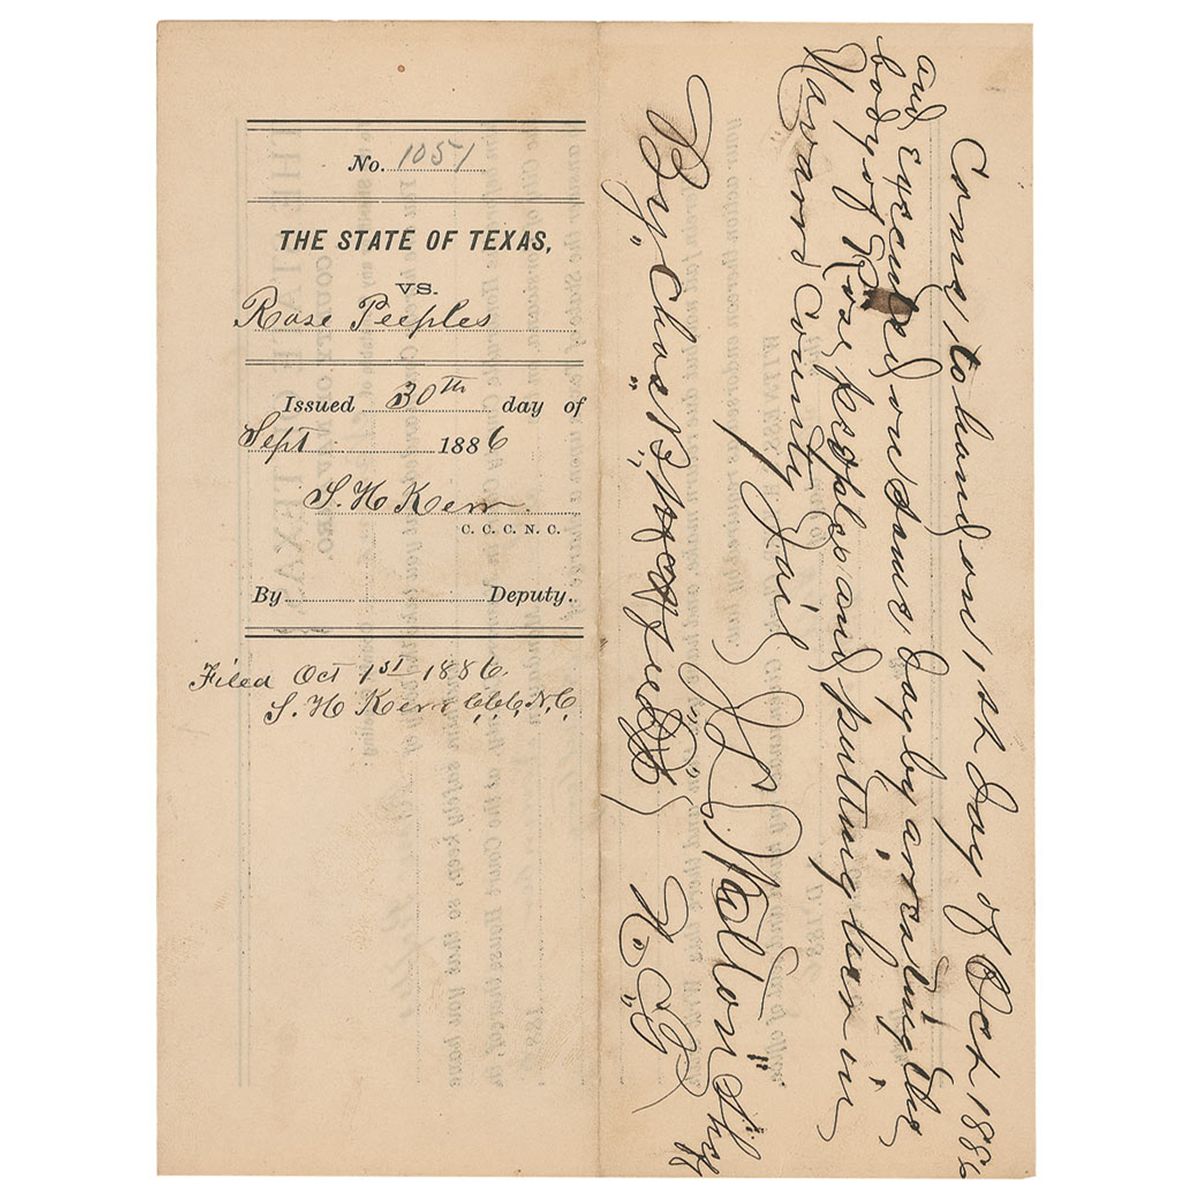 No. 1051
THE STATE OF TEXAS,
VS.
Rose Peeples
Issued 30th day of
Sept 1886
S. H. Kerr
C. C. C. N. C.
By Deputy.
Filed Oct 1st 1886.
S. H. Kerr C.C.C.N.C.
Came to hand on 1st day of Oct 1886
and Executed on Same day by arresting the
body of Rose peoples and putting her in
Navarro County Jail
Walton Shff
By Chas
N. C.